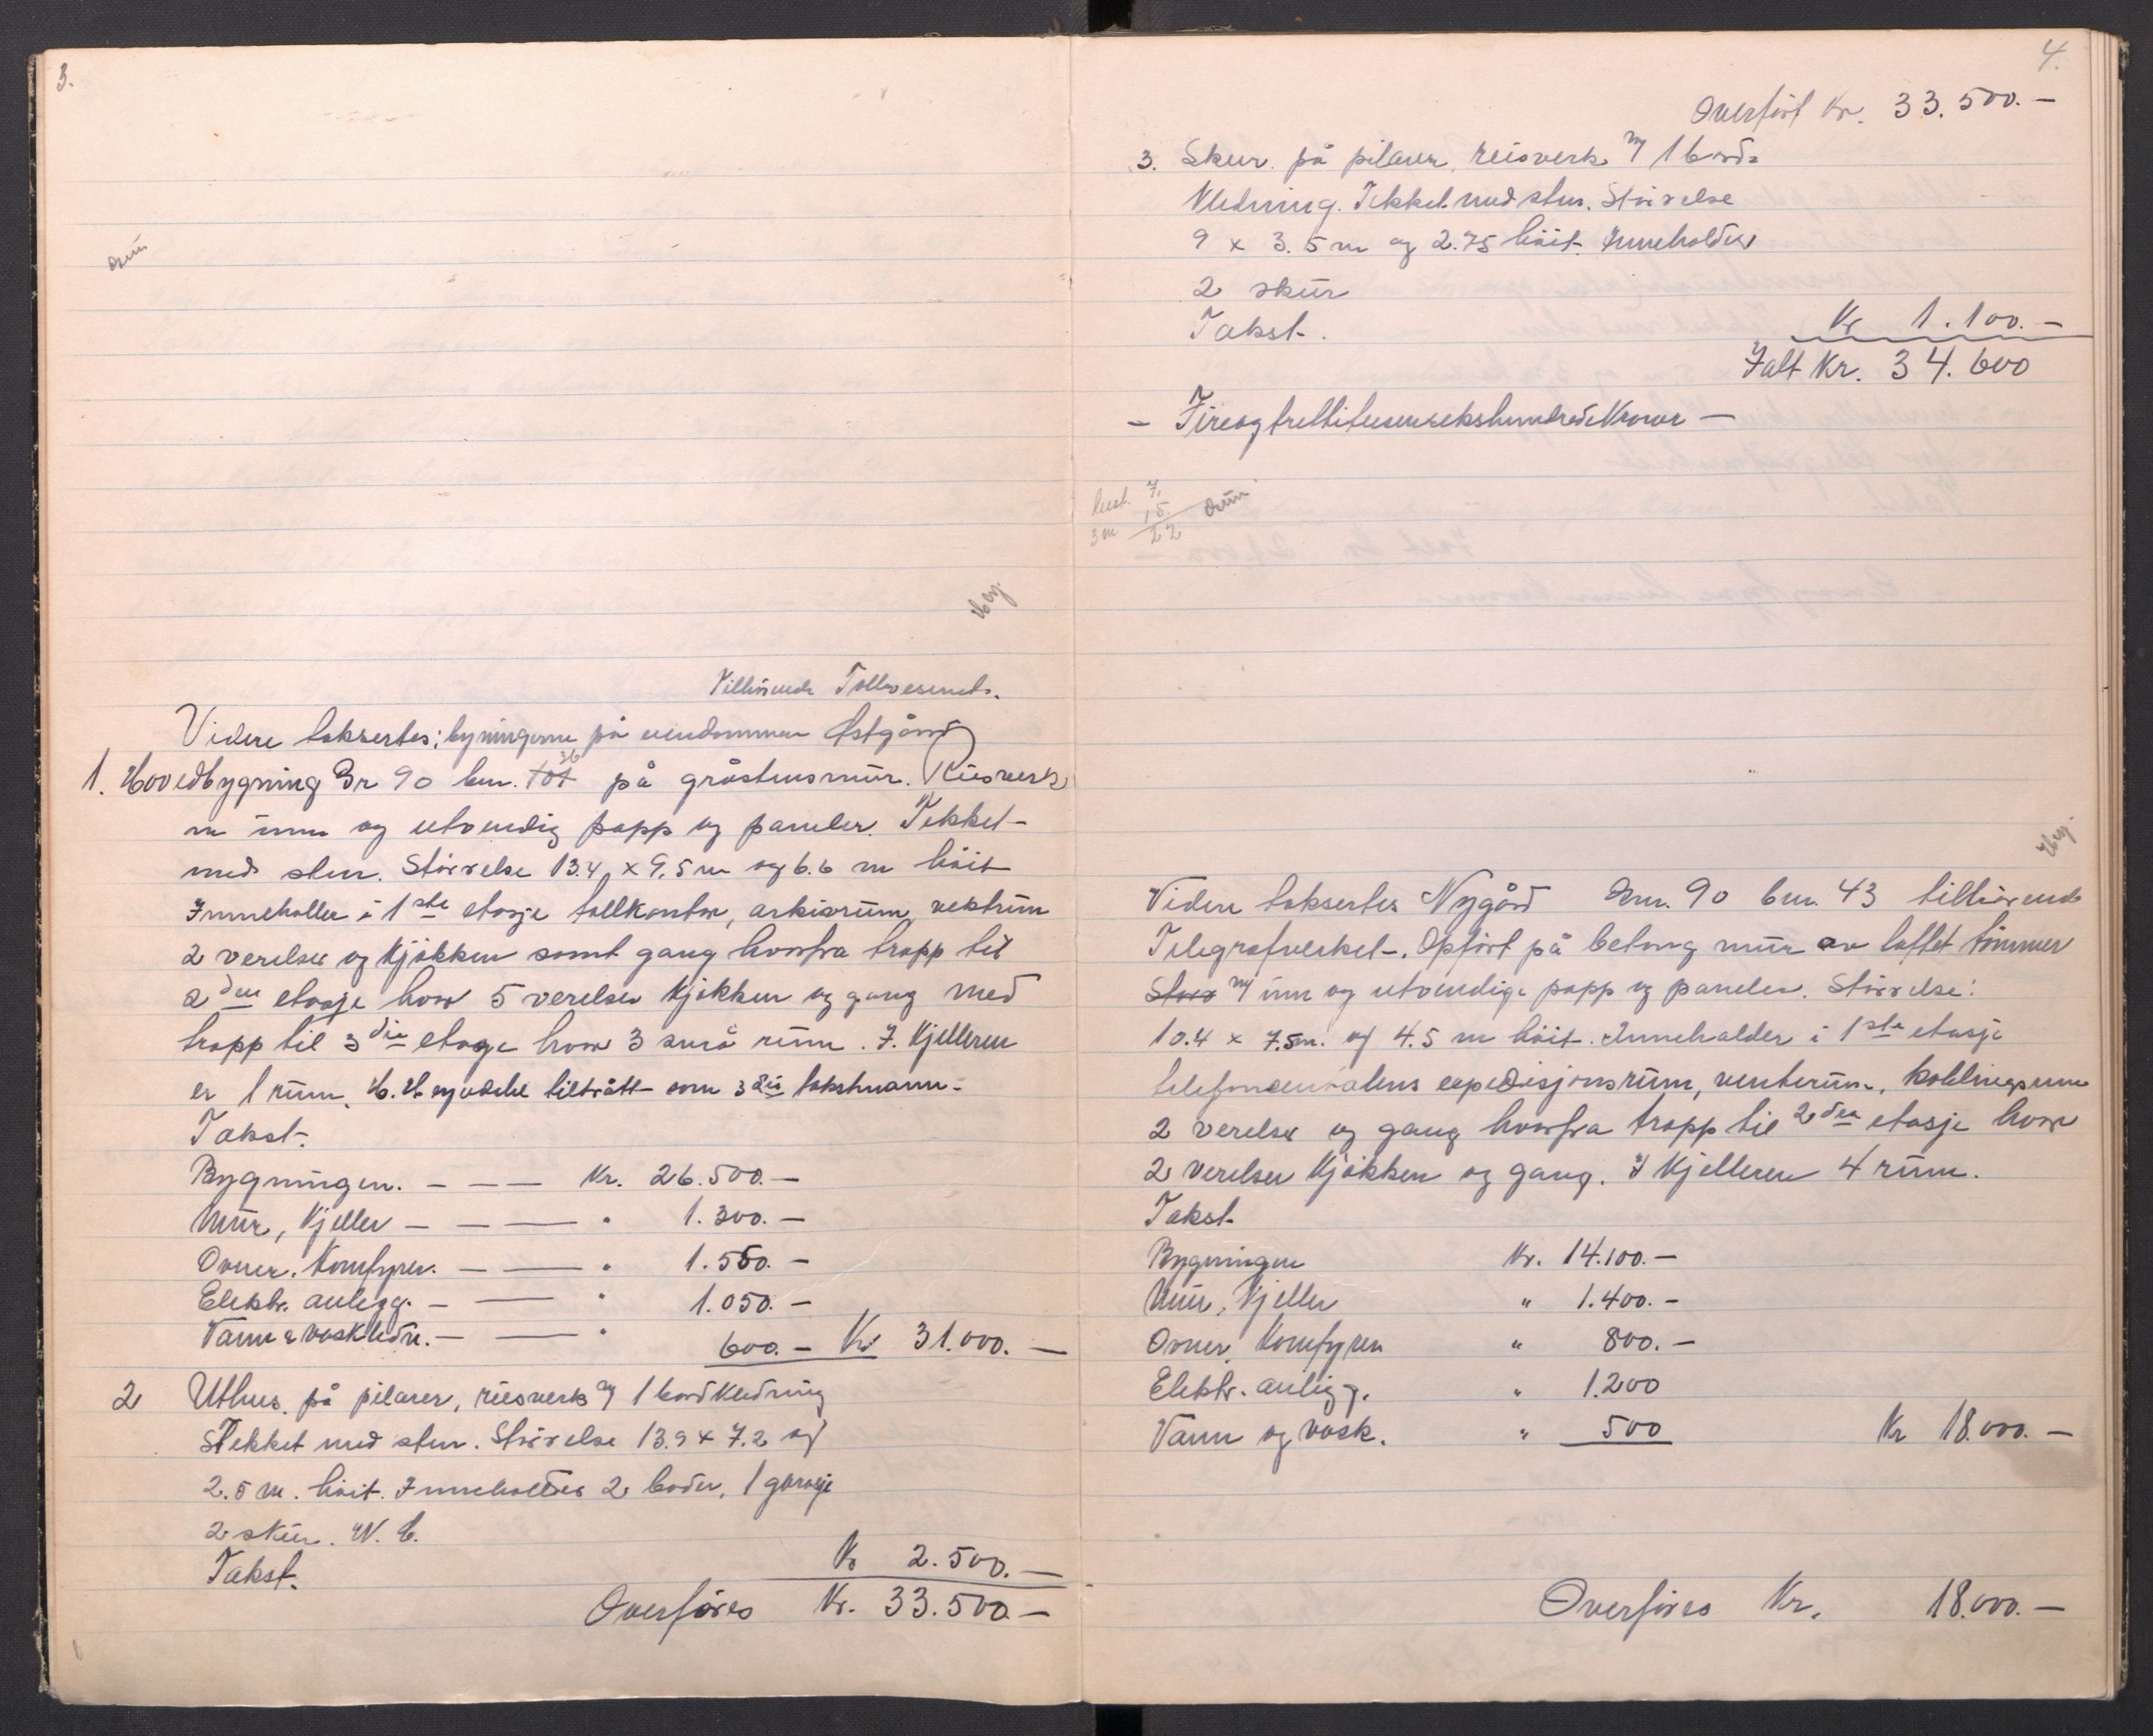 3.
Tilhörende Tollvesenet.
Videre taksertes; bygningerne på eiendommen Östgård
1. Hovedbygning Gr 90 bnr. på gråstensmur. Reisverk
m inn og utvendig papp og paneler. Tekket
med sten. Störrelse 13.4 x 9,5 m og 6.6 m höit
Inneholler i 1ste etasje tollkontor, arkivrum, vektrum
2 verelser og kjökken samt gang hvorfra trapp til
2den etasje hvor 5 verelser kjökken og gang med
trapp til 3die etage hvor 3 små rum. I. Kjelleren
er 1 rum. tiltrått som 3die takstmann.
Takst.
Bygningen. - - — Kr. 26.500.-
Mur, Kjeller - - — " 1.300.-
Ovner. Komfyrer. - — " 1.550.-
Elektr. anlegg. - — " 1.050.-
Vann & vaskledn. - — " 600.- Kr 31.000.-
2 Uthus. på pilarer, reisverk og 1 bordkledning
Tekket med sten. Störrelse 13.9 x 7.2 og
2.5 m. höit. Inneholder 2 boder, 1 garasje
2 skur. W. C.
Takst. Kr 2.500.-
Overföres Kr. 33.500.-
4.
Overfört Kr. 33.500.-
3. Skur. på pilarer, reisverk m/ 1 bords
Kledning. Tekket med sten. Störrelse
9 x 3.5 m og 2.75 höit. Inneholder
2 skur
Takst. Kr 1.100.-
Ialt Kr. 34.600
- Fireogtrettitusensekshundrede Kroner -
7.
15.
3 m 22
Videre taksertes Nygård Gnr. 90 bnr. 43 tilhörende
Telegrafverket. Opfört på betong mur av laftet tömmer
m/ inn og utvendige papp og paneler. Störrelse:
10.4 x 7.5m. og 4.5 m höit. Inneholder i 1ste etasje
telefoncentralens expedisjonsrum, venterum, koblingsrum
2 verelser og gang hvorfra trapp til 2den etasje hvor
2 verelser kjökken og gang. I Kjelleren 4 rum.
Takst.
Bygningen Kr. 14.100.-
Mur, Kjeller " 1.400.-
Ovner, Komfyrer " 800.-
Elektr. anlegg. " 1.200
Vann og vask. " 500 Kr 18.000.-
Overföres Kr. 18.000.-